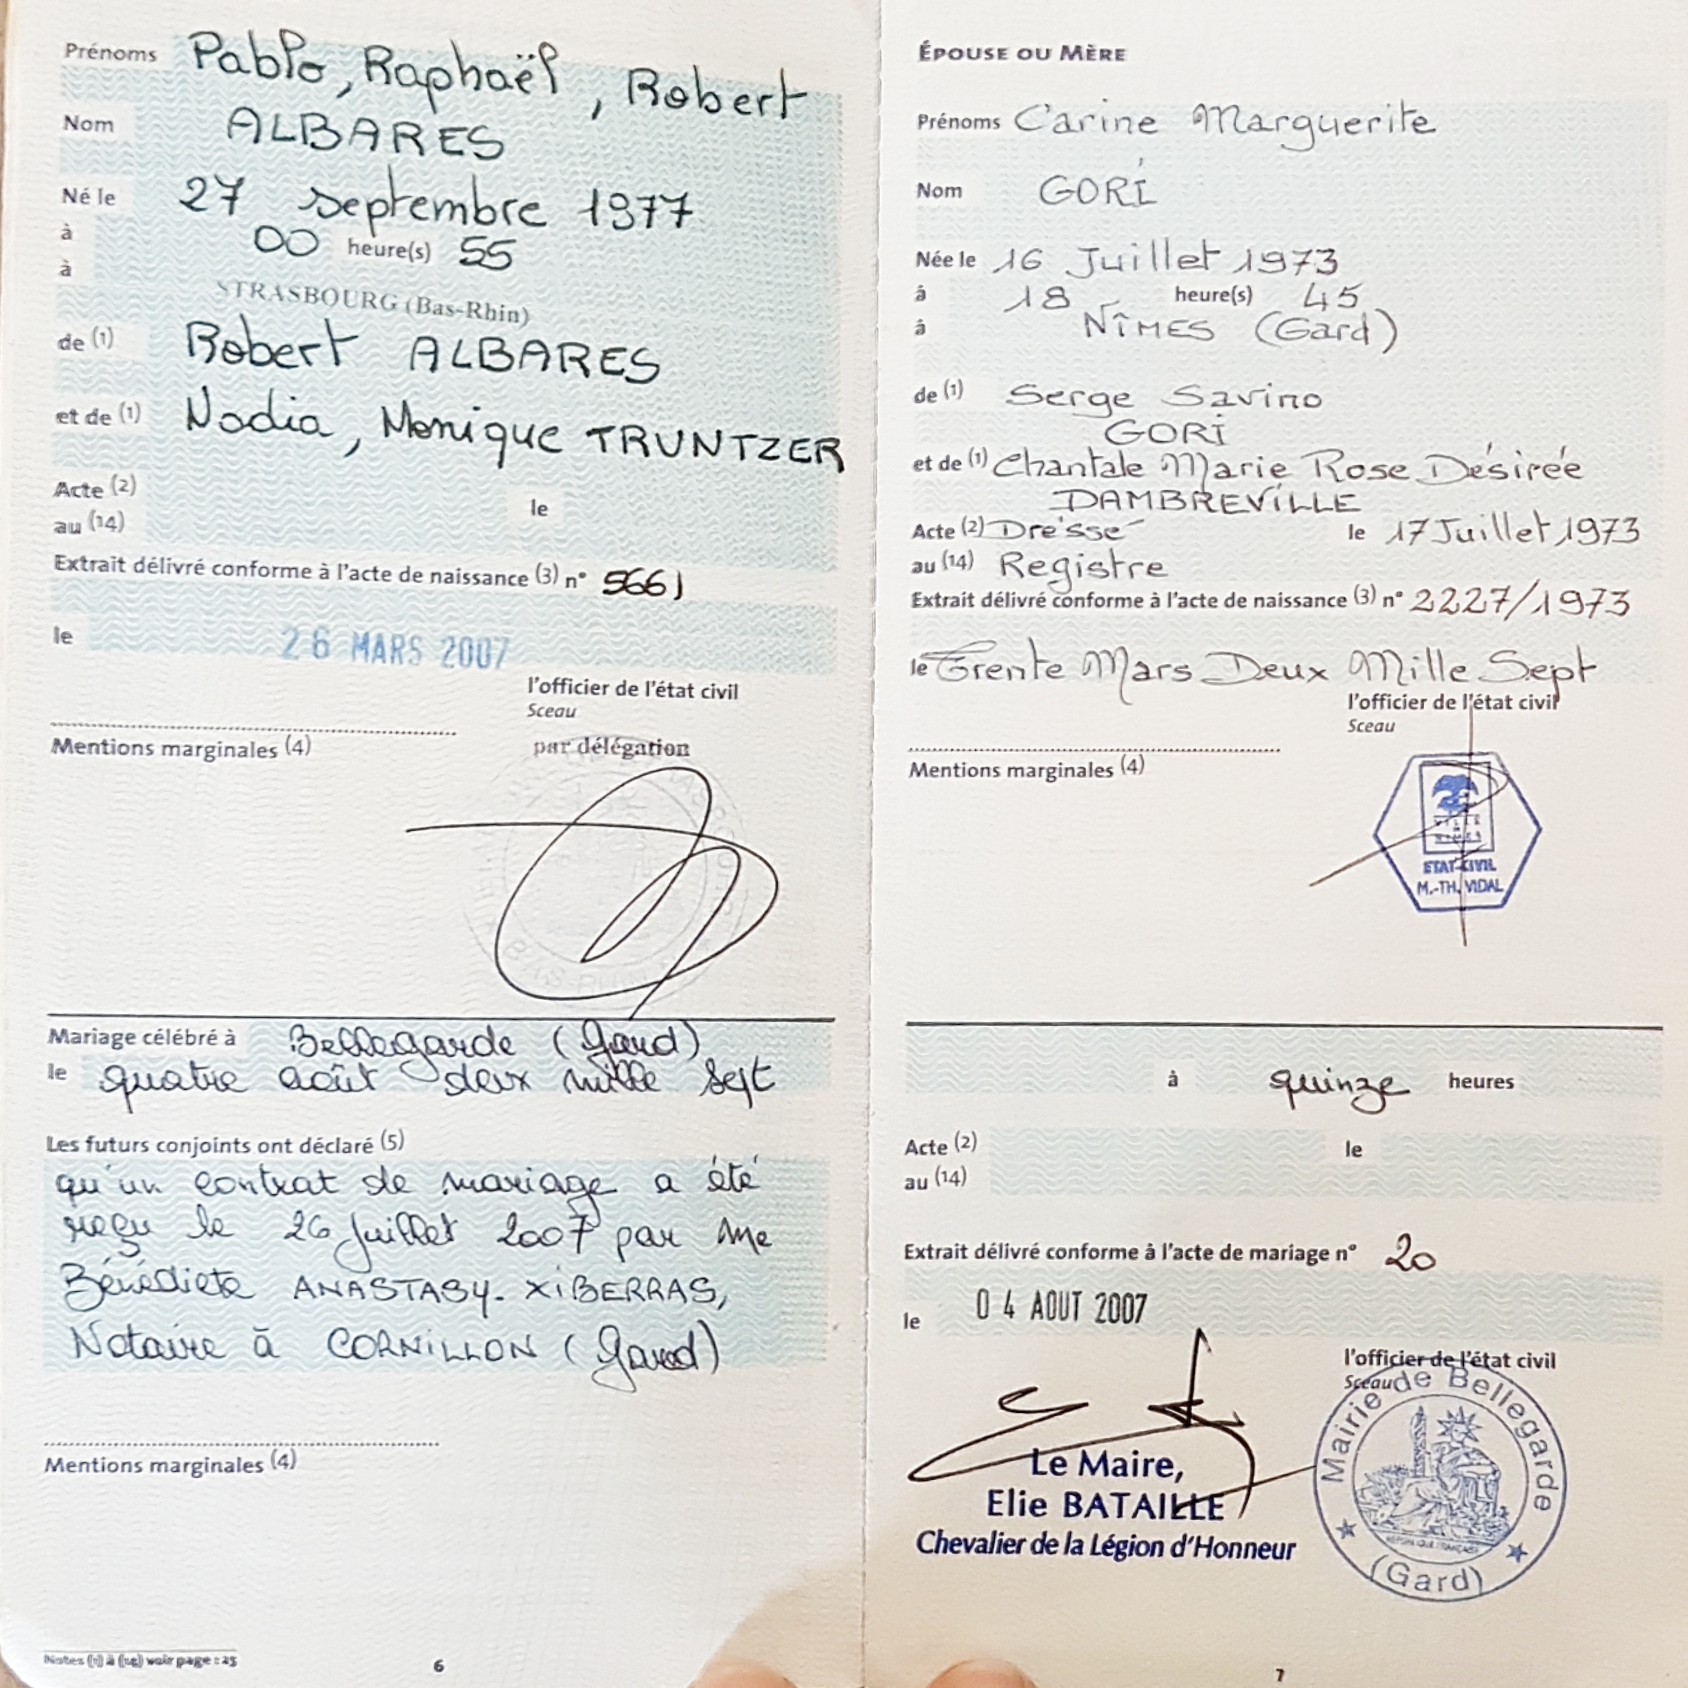 Prénoms Pablo, Raphaël, Robert
Nom ALBARES
Né le 27 septembre 1977
à 00 heure(s) 55
à
STRASBOURG (Bas-Rhin)
de (1) Robert ALBARES
et de (1) Nadia, Monique TRUNTZER
Acte (2) le
au (14)
Extrait délivré conforme à l'acte de naissance (3) n° 5661
le 26 MARS 2007
l'officier de l'état civil
Sceau
Mentions marginales (4) par délégation
BAS-RHIN
Mariage célébré à Bellegarde (Gard)
le quatre août deux mille sept
Les futurs conjoints ont déclaré (5)
qu'un contrat de mariage a été
reçu le 26 juillet 2007 par Me
Bénédicte ANASTASY-XIBERRAS,
Notaire à CORNILLON (Gard)
Mentions marginales (4)
Notes (1) à (14) voir page : 25
6
ÉPOUSE OU MÈRE
Prénoms Carine Marguerite
Nom GORI
Née le 16 Juillet 1973
à 18 heure(s) 45
à NÎMES (Gard)
de (1) Serge Savino
GORI
et de (1) Chantale Marie Rose Désirée
DAMBREVILLE
Acte (2) Dressé le 17 Juillet 1973
au (14) Registre
Extrait délivré conforme à l'acte de naissance (3) n° 2227/1973
le Trente Mars Deux Mille Sept
l'officier de l'état civil
Sceau
Mentions marginales (4)
ETAT-CIVIL
M.-TH. VIDAL
à quinze heures
Acte (2) le
au (14)
Extrait délivré conforme à l'acte de mariage n° 20
le 04 AOUT 2007
l'officier de l'état civil
Sceau
Mairie de Bellegarde
(Gard)
RÉPUBLIQUE FRANÇAISE
Le Maire,
Elie BATAILLE
Chevalier de la Légion d'Honneur
7